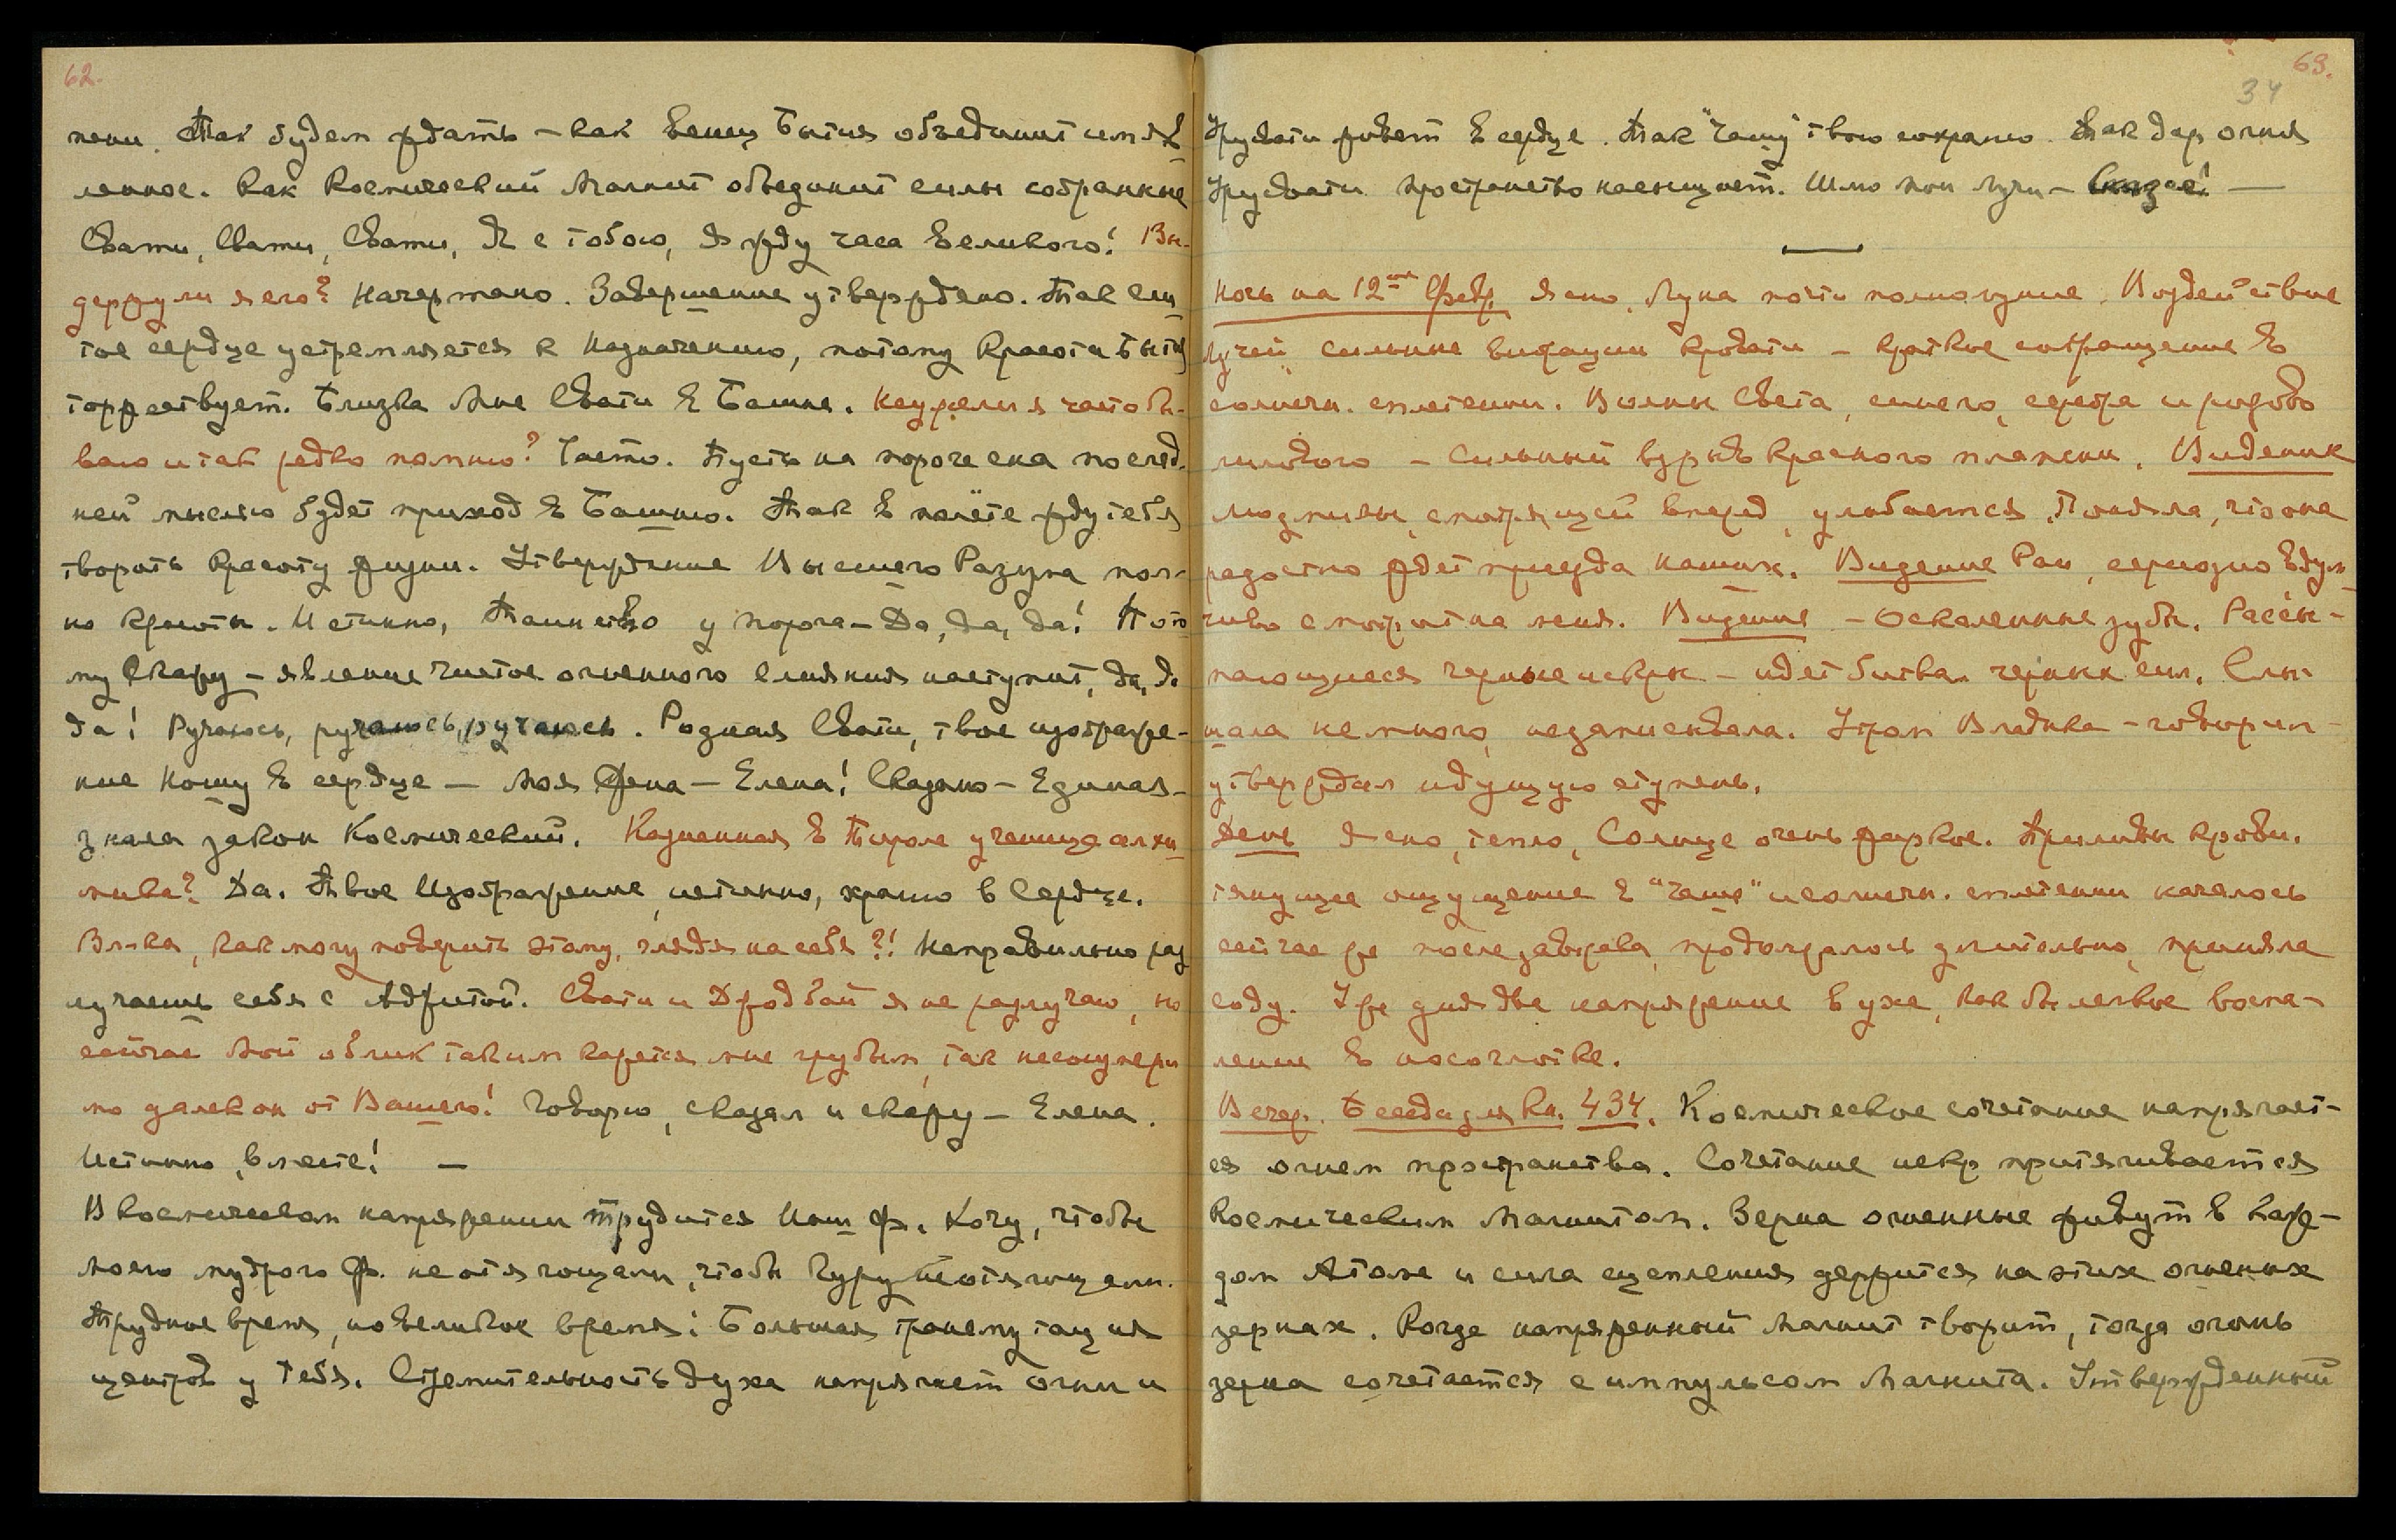 62.
пени. Так будем ждать – как венец Бытия объединит имя в
ленное. Как Космический Магнит объединит силы собранные
Свати, Свати, Свати, Я с тобою, Я жду часа великого! Вы-
держу ли я его? Начертано. Завершение утверждено. Так сли
тое сердце устремляется к назначению, потому Красота Бытия
торжествует. Близка Мне Свати в Башне. Неужели я часто бы-
ваю и так редко помню? Часто. Пусть на пороге сна послед.
ней мыслью будет приход в Башню. Так в полёте жду тебя
творить красоту жизни. Утверждение Высшего Разума пол-
но красоты. Истинно, Таинство у порога – Да, да, да! Пото
му скажу – явление чистое огненного слияния наступит, да, да
да! Ручаюсь, ручаюсь, ручаюсь. Родная Свати, твое изображе-
ние ношу в сердце – Моя Жена – Елена! Сказано – Единая –
знала закон Космический. Казненная в Тироле ученица алхи-
мика? Да. Твое Изображение, истинно, храню в Сердце.
Вл-ка, как могу поверить этому, глядя на себя?! Неправильно раз
лучаешь себя с Аджитой. Свати и Джодбай я не разлучаю, но
сейчас мой облик таким кажется мне грубым, так несоизмери
мо далек он от Вашего! Говорю, сказал и скажу – Елена.
Истинно, вместе! –
В космическом напряжении трудится Наш Ф. Хочу, чтобы
Моего мудрого Ф. не отягощали, чтобы Гуру не отягощали.
Трудное время, но великое время! Большая трансмутация
центров у тебя. Стремительность духа напрягает огни и
63.
34
Урусвати живет в сердце. Так "Чашу" твою сохраню. Так дар огня
Урусвати пространство насыщает. Шлю мои лучи – Сказал! –
Ночь на 12ое Февр. Ясно. Луна почти полнолуние. Воздействие
лучей, сильные вибрации кровати – краткое сокращение в
солнечн. сплетении. Волны Света, синего, серебра и розово
лилового – сильный взрыв красного пламени. Видение
Людмилы, смотрящей вперед, улыбается. Поняла, что она
радостно ждет приезда наших. Видение Раи, серьезно вдум-
чиво смотрит на меня. Видение – оскаленные зубы. Рассы-
пающиеся черные искры – идет битва черных сил. Слы-
шала немного, не записывала. Утром Владыка – говорил –
утверждал идущую ступень.
День Ясно, тепло, Солнце очень жаркое. Приливы крови.
тянущее ощущение в "чаше" и солнечн. сплетении началось
сейчас же после завтрака, продолжалось длительно, приняла
соду. Уже дня два напряжение в ухе, как бы легкое воспа-
ление в носоглотке.
Вечер. Беседа для Кн. 434. Космическое сочетание напрягает-
ся огнем пространства. Сочетание искр притягивается
Космическим Магнитом. Зерна огненные живут в каж-
дом Атоме и сила сцепления держится на этих огненных
зернах. Когда напряженный Магнит творит, тогда огонь
зерна сочетается с импульсом Магнита. Утвержденный